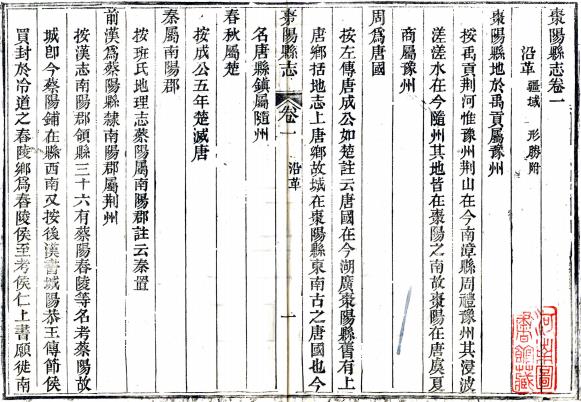 棗陽縣志卷一
沿革 疆域 形勝附
棗陽縣地於禹貢屬豫州
按禹貢荆河惟豫州荆山在今南漳縣周禮豫州其浸波
溠溠水在今隨州其地皆在棗陽之南故棗陽在唐虞夏
商屬豫州
周爲唐國
按左傳唐成公如楚註云唐國在今湖廣棗陽縣舊有上
唐鄉括地志上唐鄉故城在棗陽縣東南古之唐國也今
棗陽縣志 卷一 沿革 一
名唐縣鎮屬隨州
春秋屬楚
按成公五年楚滅唐
秦屬南陽郡
按班氏地理志蔡陽屬南陽郡註云秦置
前漢爲蔡陽縣隸南陽郡屬荆州
按漢志南陽郡領縣三十六有蔡陽舂陵等名考蔡陽故
城卽今蔡陽鋪在縣西南又按後漢書城陽恭王傳節侯
買封於冷道之舂陵鄉爲舂陵侯至考侯仁上書願徙南
河南圖
書館藏